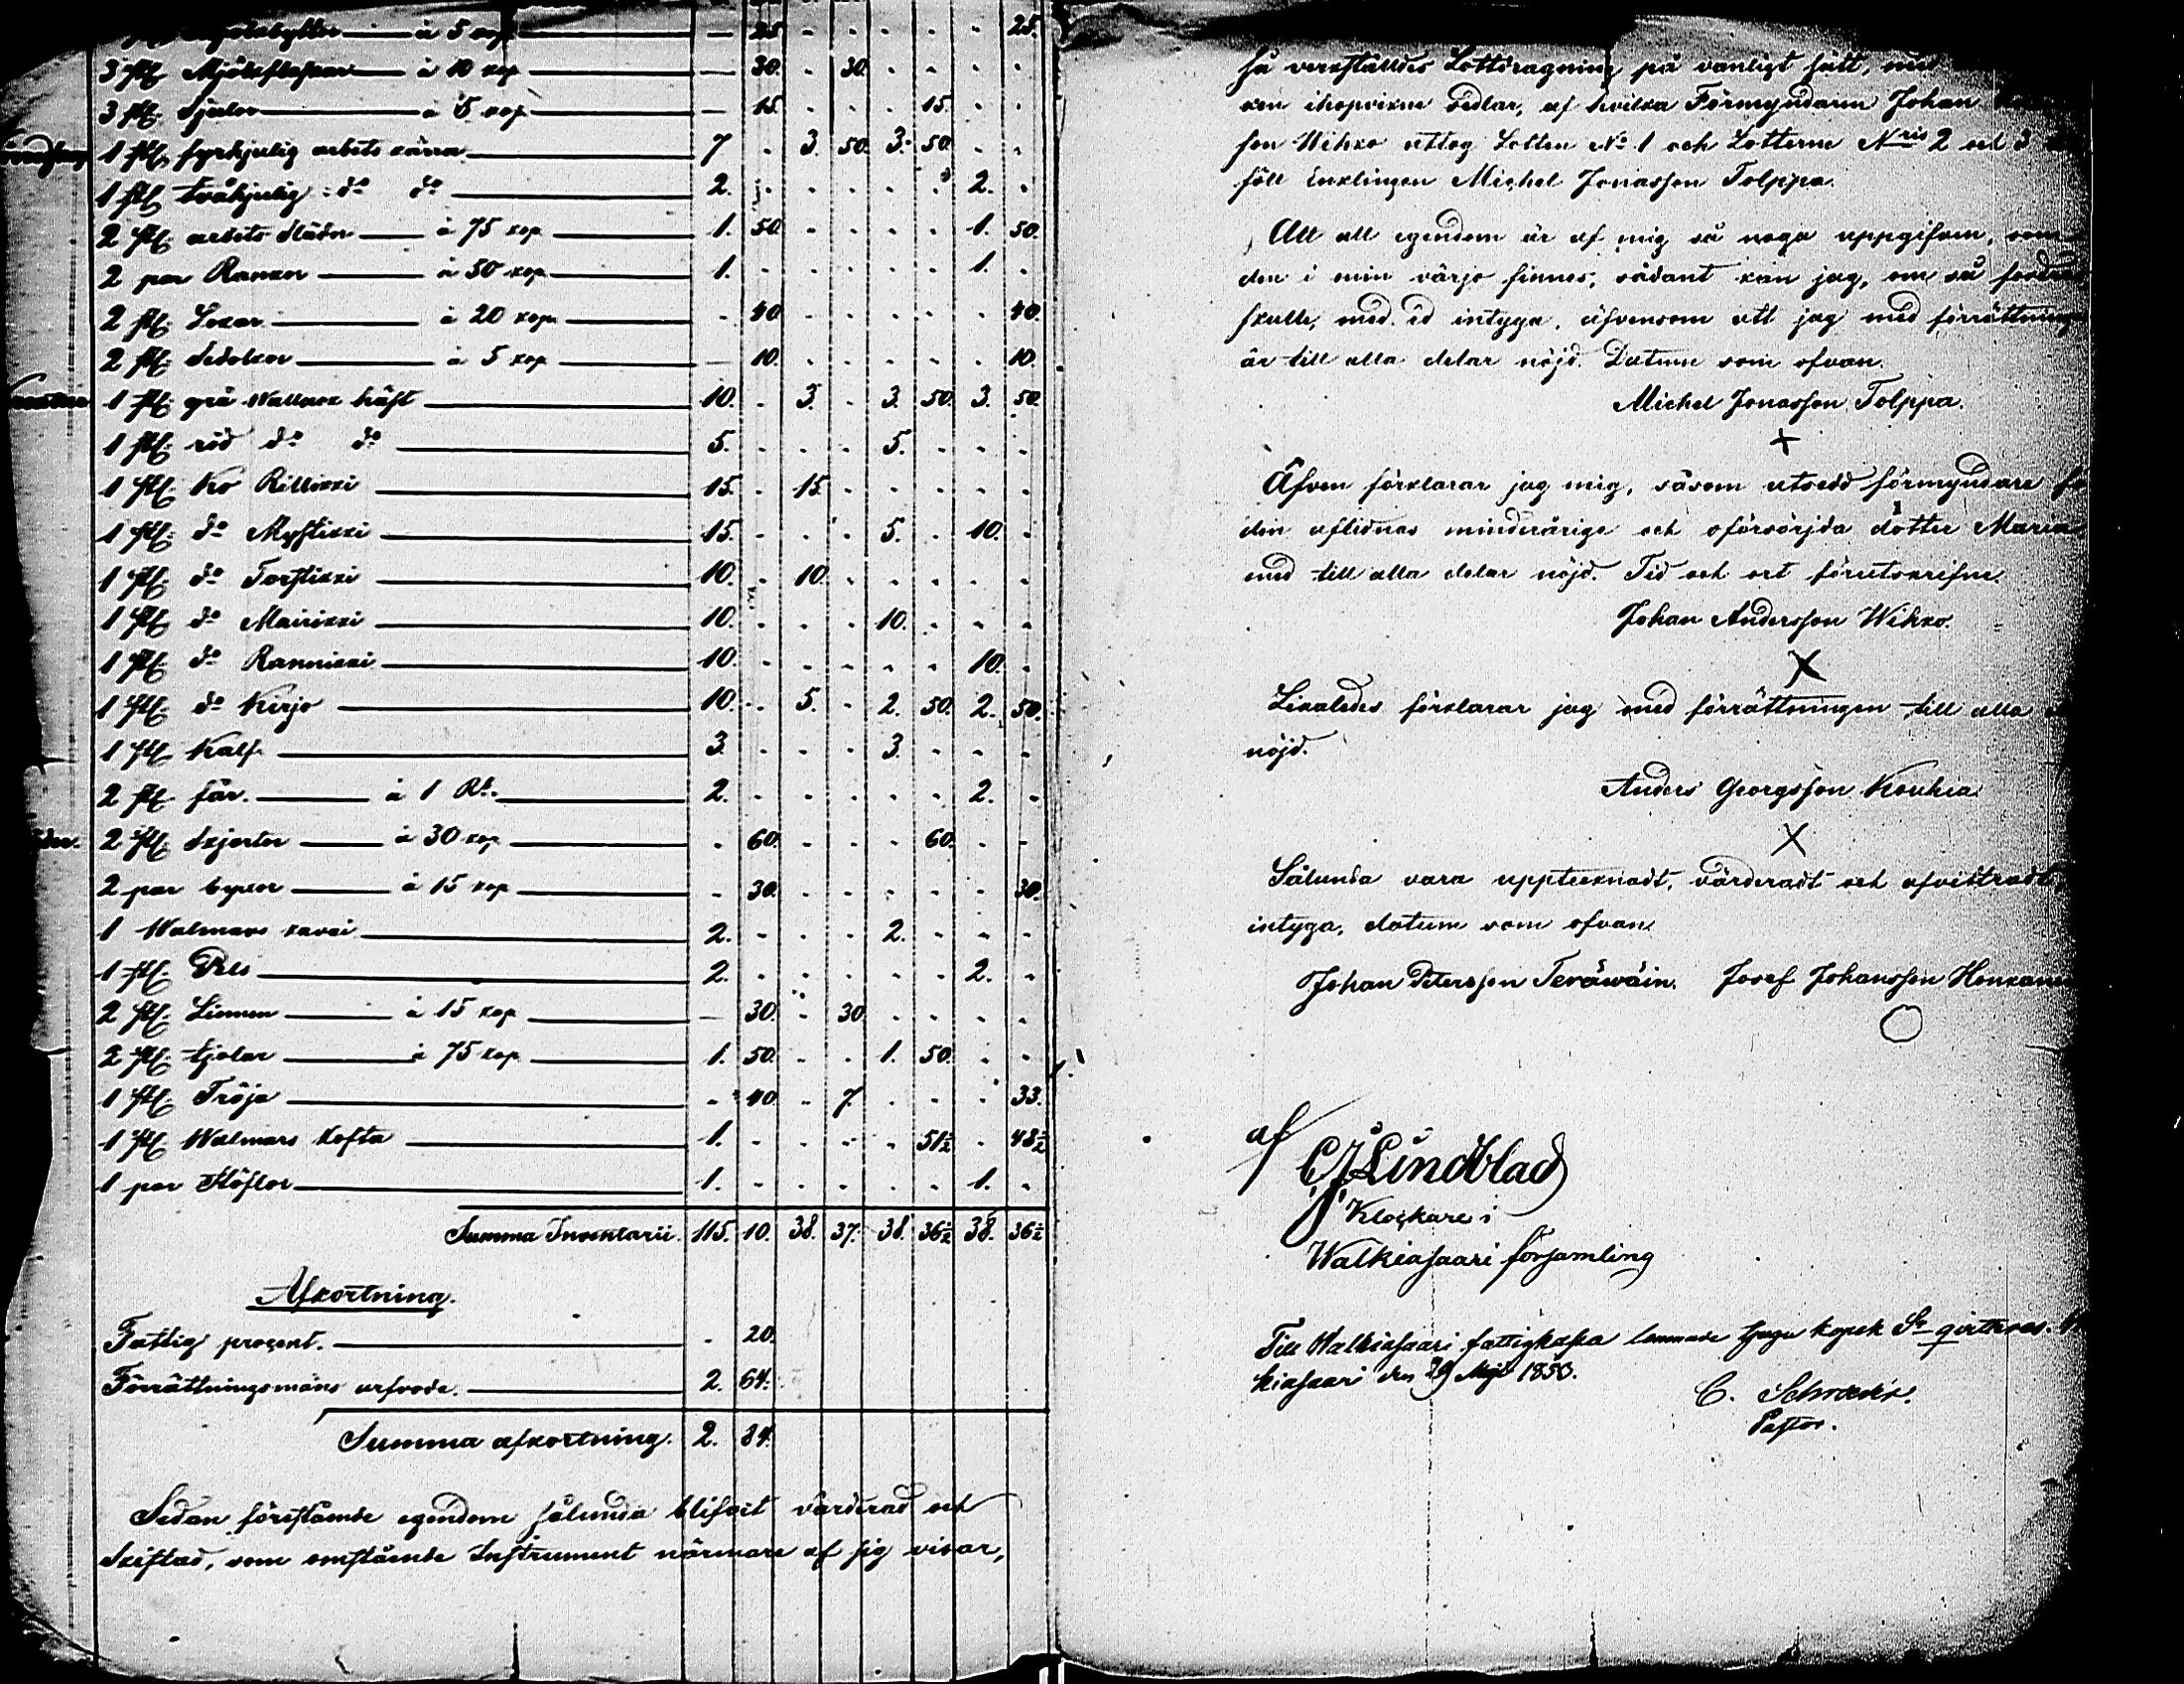 à 5 kop — 25 . . . . . . 25.
3 st. Mjölkflaskor à 10 kop — 30. . 30. . . . .
3 st. à 5 kop — 15. . . . 15. . .
1 st. fyrhjulig arbets kärra 7 . 3. 50. 3. 50. . .
1 st. tvåhjulig do do 2. . . . . . 2. .
2 st. arbets Slädor à 75 kop 1. 50. . . . . 1. 50.
2 par Rankor à 50 kop 1. . . . . . 1. .
2 st. Lokar à 20 kop . 40 . . . . . 40.
2 st. Sedolkor à 5 kop — 10. . . . . . 10.
1 st. grå Wallack häst 10. . 3. . 3. 50. 3. 50.
1 st. röd do do 5. . . . 5. . . .
1 st. Ko Rillikki 15. . 15. . . . . .
1 st. do Mystikki 15. . . . 5. . 10. .
1 st. do Torstikki 10. . 10. . . . . .
1 st. do Mairikki 10. . . . 10. . . .
1 st. do Rannikki 10. . . . . . 10. .
1 st. do Kirjo 10. . 5. . 2. 50. 2. 50.
1 st. Kalf 3. . . . 3. . . .
2 st. får. à 1 Rb. 2. . . . . . 2. .
2 st. Skjortor à 30 kop . 60. . . . 60. . .
2 par byxor à 15 kop . 30. . . . . . 30.
1 Walmars kavai 2. . . . 2. . . .
1 st. Pels 2. . . . . . 2. .
2 st. Linnen à 15 kop — 30. . 30. . . . .
2 st. kjolar à 75 kop 1. 50. . . 1. 50. . .
1 st. Tröja . 40. . 7. . . . 33.
1 st. Walmars kofta 1. . . . . 51½ . 48½
1 par Stöflor 1. . . . . . 1. .
Summa Inventarii. 115. 10. 38. 37. 38. 36½ 38. 36½
Afkortning.
Fattig procent. . 20.
Förrättningsmäns arfvode. 2. 64.
Summa afkortning. 2. 84.
Sedan förestående egendom sålunda blifvit värderad och
skiftad, som omstående Instrument närmare af sig visar,
så verkställdes Lottdragning på vanligt sätt, med
ihopvikne sedlar, af hvilka Förmyndaren Johan
son Wihko uttog Lotten No 1 och Lotterne Nris 2 och 3
föll Enklingen Michel Jonasson Tolppa.
Att all egendom är af mig så noga uppgifven, som
den i min värjo finnes, sådant kan jag, om så fordras
skulle, med ed intyga, äfvensom att jag med förrättningen
är till alla delar nöjd. Datum som ofvan.
Michel Jonasson Tolppa.
X
Äfven förklarar jag mig, såsom utsedd förmyndare för
den aflidnas minderårige och oförsörjda dotter Maria
med till alla delar nöjd. Tid och ort förutskrifne.
Johan Andersson Wihko.
X
Likaledes förklarar jag med förrättningen till alla
nöjd.
Anders Georgsson Koukia
X
Sålunda vara uppteknadt, värderadt och afvittradt
intyga, datum som ofvan.
Johan Petersson Teräwäin. Josef Johansson Honkane
af
C J Lindblad
Klockare i
Walkiasaari församling
Till Walkiasaari fattigkassa lemnade tjugu kopek Sr qvitteras.
kiasaari den 29 Maji 1850.
C. Schroeder.
Pastor.